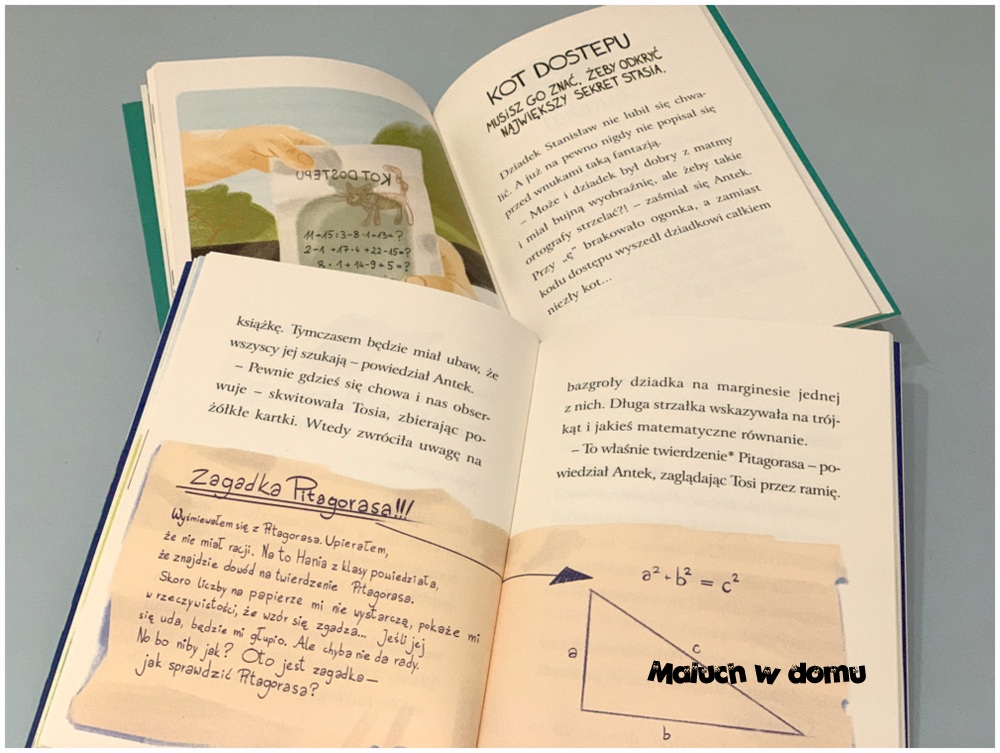 KOT DOSTEPU
11+15:3-8·1+13=?
2-1+17·4+22-15=?
8·1+14-9+5=?
KOT DOSTEPU
MUSISZ GO ZNAĆ, ŻEBY ODKRYĆ
NAJWIĘKSZY SEKRET STASIA.
Dziadek Stanisław nie lubił się chwa-
lić. A już na pewno nigdy nie popisał się
przed wnukami taką fantazją.
– Może i dziadek był dobry z matmy
i miał bujną wyobraźnię, ale żeby takie
ortografy strzelać?! – zaśmiał się Antek.
Przy „ę” brakowało ogonka, a zamiast
kodu dostępu wyszedł dziadkowi całkiem
niezły kot...
książkę. Tymczasem będzie miał ubaw, że
wszyscy jej szukają – powiedział Antek.
– Pewnie gdzieś się chowa i nas obser-
wuje – skwitowała Tosia, zbierając po-
żółkłe kartki. Wtedy zwróciła uwagę na
Zagadka Pitagorasa!!!
Wyśmiewałem się z Pitagorasa. Upierałem,
że nie miał racji. Na to Hania z klasy powiedziała,
że znajdzie dowód na twierdzenie Pitagorasa.
Skoro liczby na papierze mi nie wystarczą, pokaże mi
w rzeczywistości, że wzór się zgadza... Jeśli jej
się uda, będzie mi głupio. Ale chyba nie da rady.
No bo niby jak? Oto jest zagadka –
jak sprawdzić Pitagorasa?
bazgroły dziadka na marginesie jednej
z nich. Długa strzałka wskazywała na trój-
kąt i jakieś matematyczne równanie.
– To właśnie twierdzenie* Pitagorasa – po-
wiedział Antek, zaglądając Tosi przez ramię.
a² + b² = c²
a
c
b
Maluch w domu